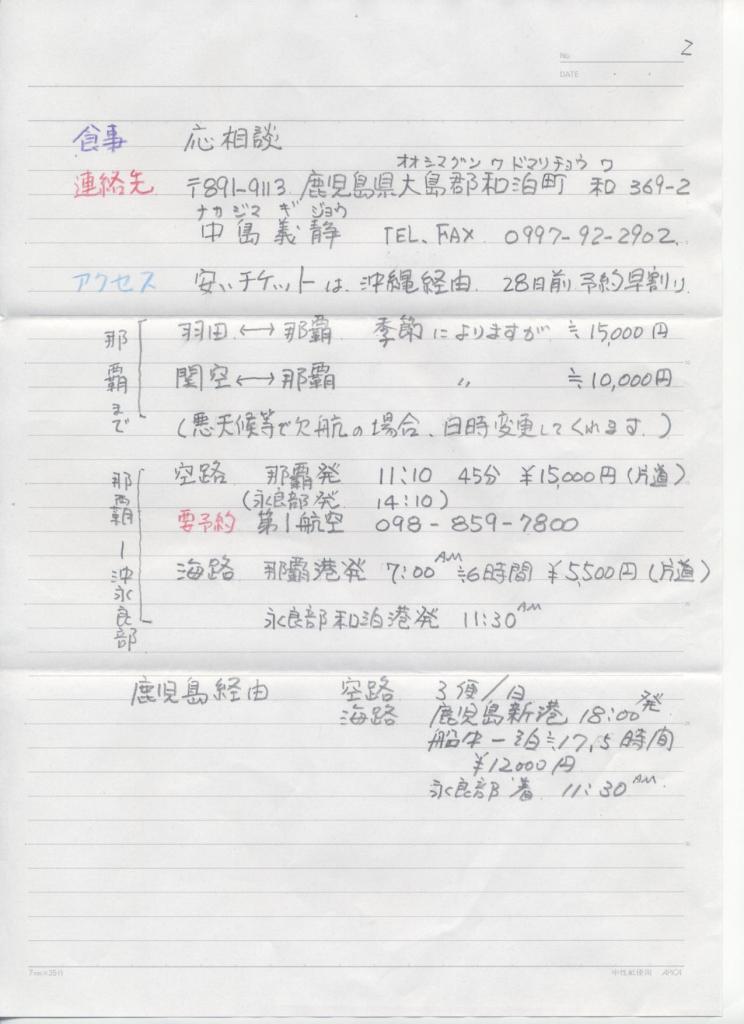 No. 2
DATE ・ ・
食事 応相談
オオシマグン ワドマリチョウ ワ
連絡先 〒891-9113 鹿児島県大島郡和泊町 和 369-2
ナカジマ ギ ジョウ
中島義静 TEL、FAX 0997-92-2902.
アクセス 安いチケットは、沖縄経由、28日前予約早割り
那覇まで
羽田 ←→ 那覇 季節によりますが ≒ 15,000円
関空 ←→ 那覇 〃 ≒ 10,000円
(悪天候等で欠航の場合、日時変更してくれます。)
那覇ー沖永良部
空路 那覇発 11:10 45分 ¥15,000円(片道)
(永良部発 14:10)
要予約 第1航空 098-859-7800
海路 那覇港発 7:00AM ≒6時間 ¥5,500円(片道)
永良部和泊港発 11:30AM
鹿児島経由 空路 3便/日
海路 鹿児島新港 18:00発
船中一泊≒17,5時間
¥12000円
永良部着 11:30AM
7mm×35行 中性紙使用 APICA